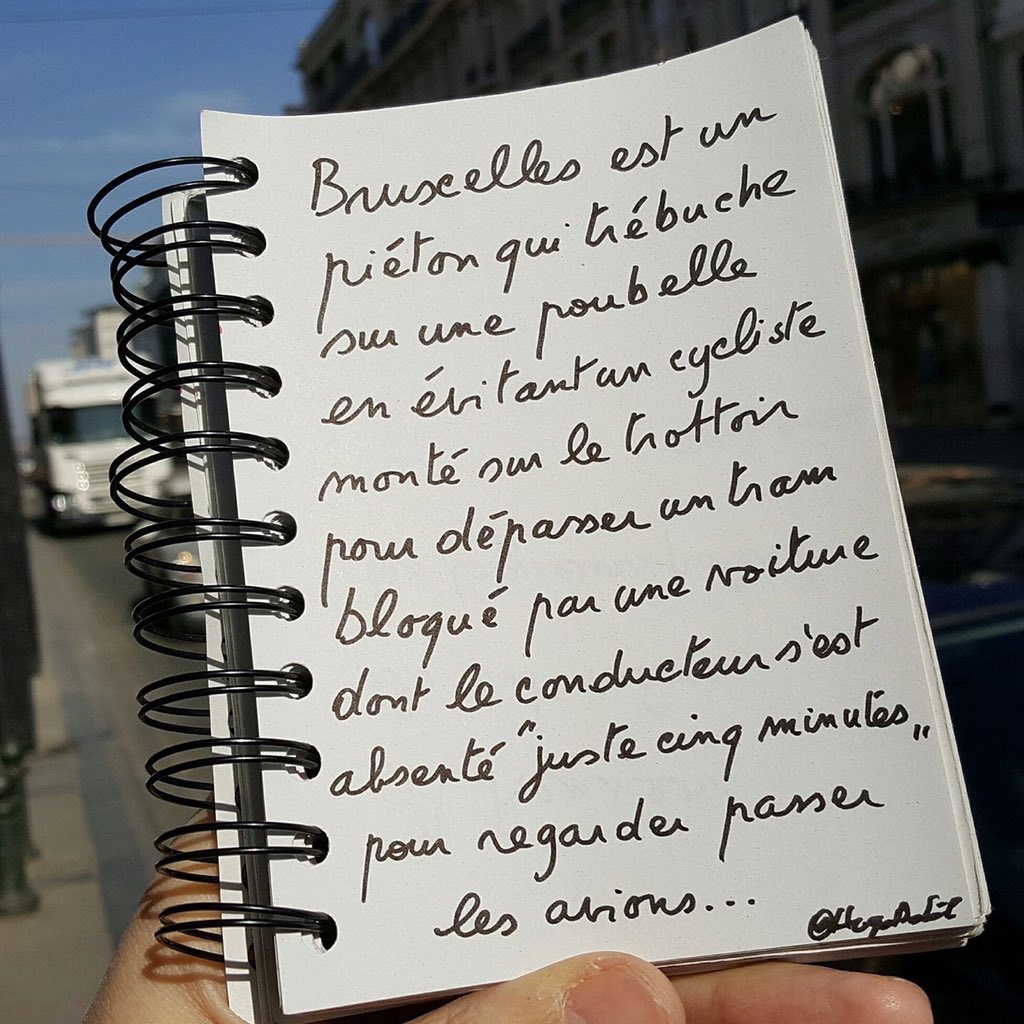 Bruxelles est un
piéton qui trébuche
sur une poubelle
en évitant un cycliste
monté sur le trottoir
pour dépasser un tram
bloqué par une voiture
dont le conducteur s'est
absenté "juste cinq minutes„
pour regarder passer
les avions...